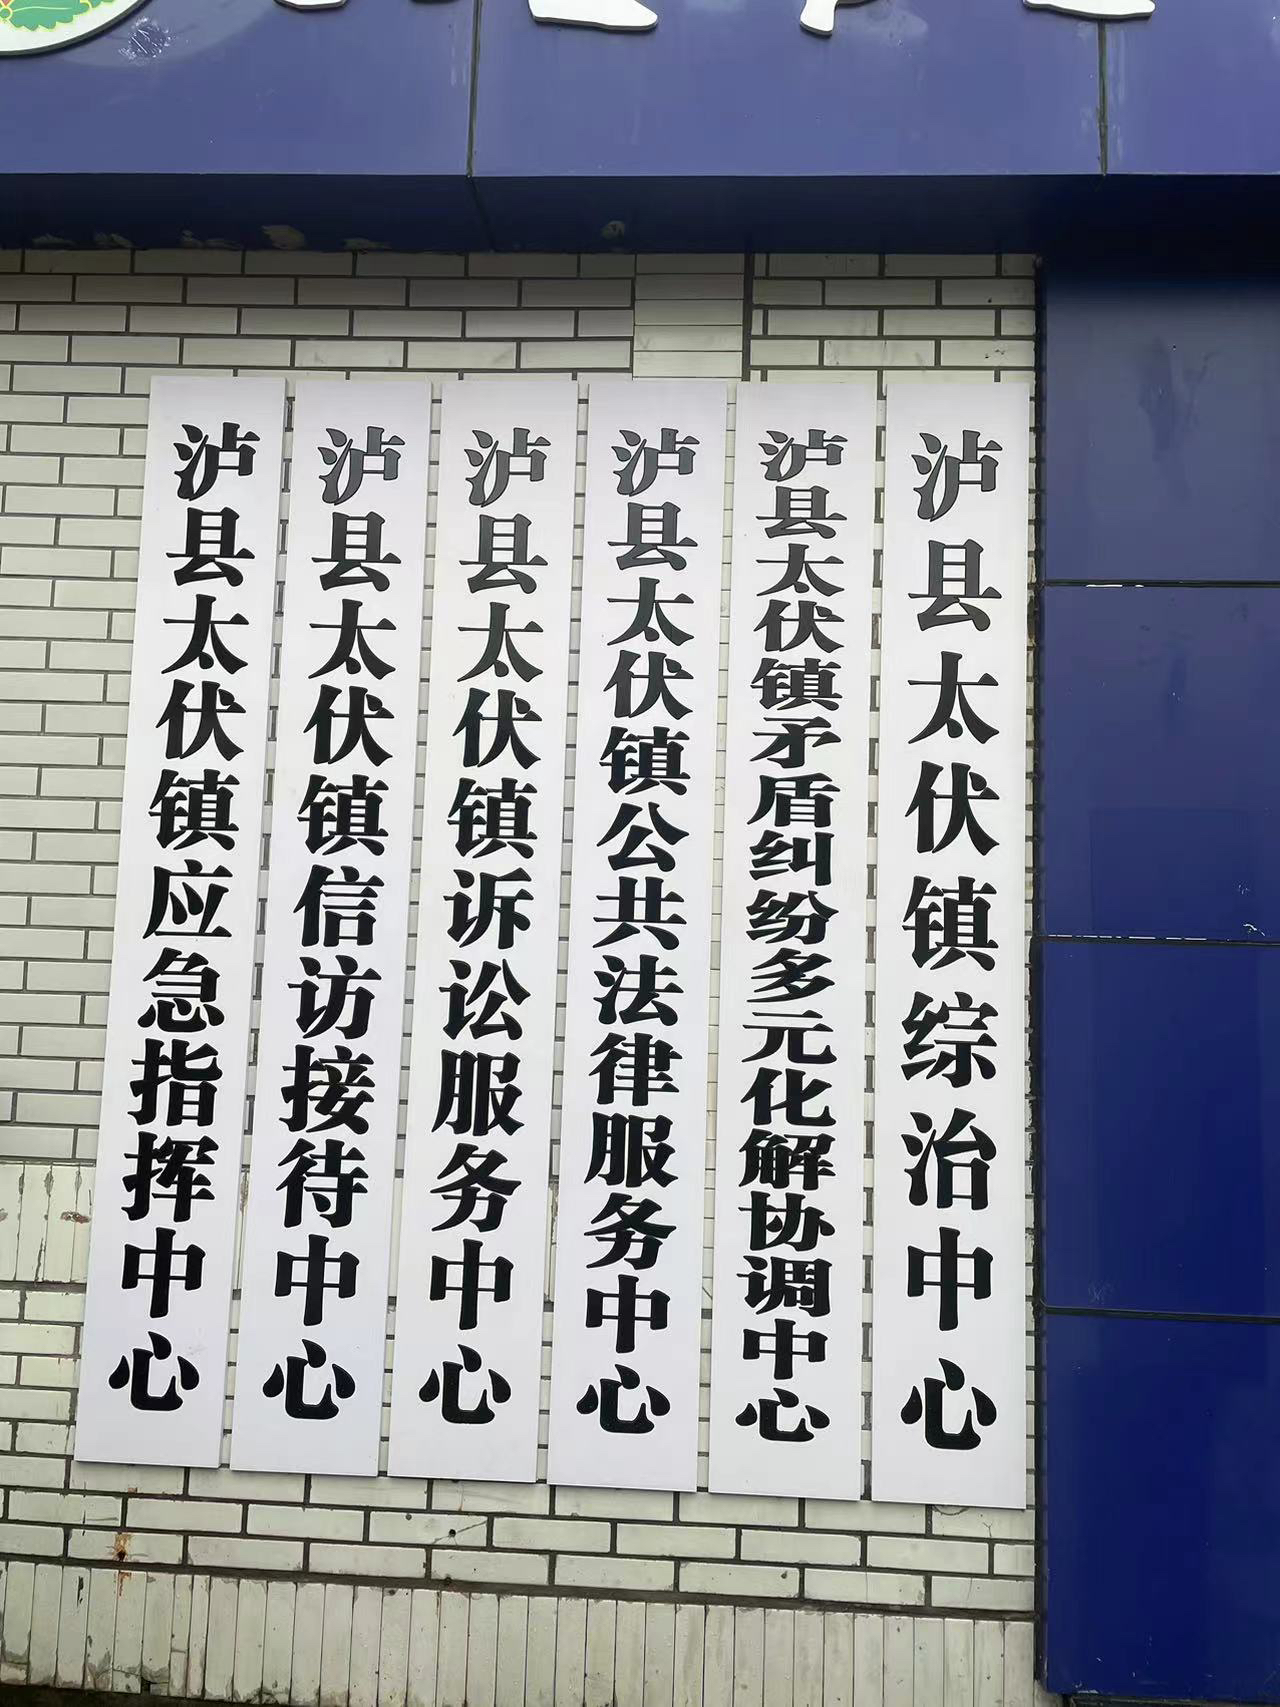 泸县太伏镇综治中心
泸县太伏镇矛盾纠纷多元化解协调中心
泸县太伏镇公共法律服务中心
泸县太伏镇诉讼服务中心
泸县太伏镇信访接待中心
泸县太伏镇应急指挥中心